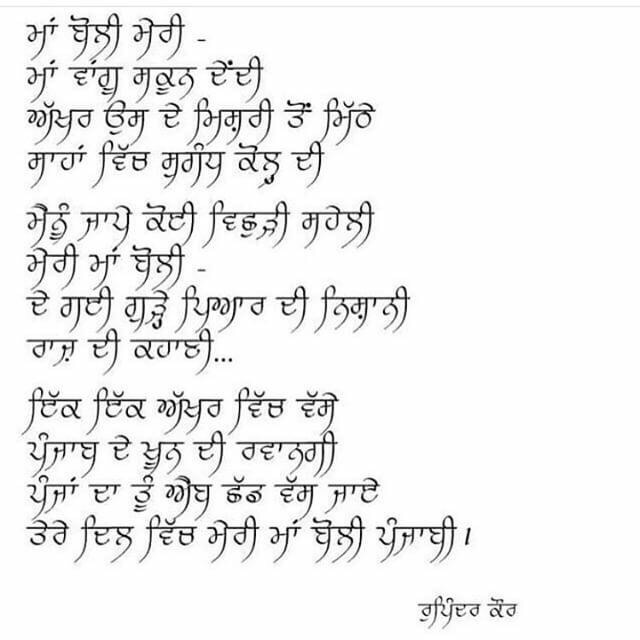 ਮਾਂ ਬੋਲੀ ਮੇਰੀ -
ਮਾਂ ਵਾਂਗੂ ਸਕੂਨ ਦੇਂਦੀ
ਅੱਖਰ ਉਸ ਦੇ ਮਿਸ਼ਰੀ ਤੋਂ ਮਿੱਠੇ
ਸਾਹਾਂ ਵਿੱਚ ਸੁਗੰਧ ਕੋਲ੍ਹ ਦੀ
ਮੈਨੂੰ ਜਾਪੇ ਕੋਈ ਵਿਛੁੜੀ ਸਹੇਲੀ
ਮੇਰੀ ਮਾਂ ਬੋਲੀ -
ਦੇ ਗਈ ਗੁੜ੍ਹੇ ਪਿਆਰ ਦੀ ਨਿਸ਼ਾਨੀ
ਰਾਜ਼ ਦੀ ਕਹਾਣੀ...
ਇੱਕ ਇੱਕ ਅੱਖਰ ਵਿੱਚ ਵੱਸੇ
ਪੰਜਾਬ ਦੇ ਖੂਨ ਦੀ ਰਵਾਨਗੀ
ਪੰਜਾਂ ਦਾ ਤੂੰ ਐਬ ਛੱਡ ਵੱਸ ਜਾਏ
ਤੇਰੇ ਦਿਲ ਵਿੱਚ ਮੇਰੀ ਮਾਂ ਬੋਲੀ ਪੰਜਾਬੀ।
ਰੁਪਿੰਦਰ ਕੌਰ